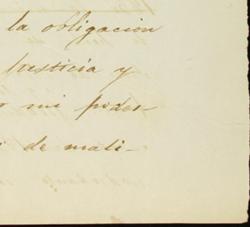 la obligacion
Justicia y
mi poder
i de mali-